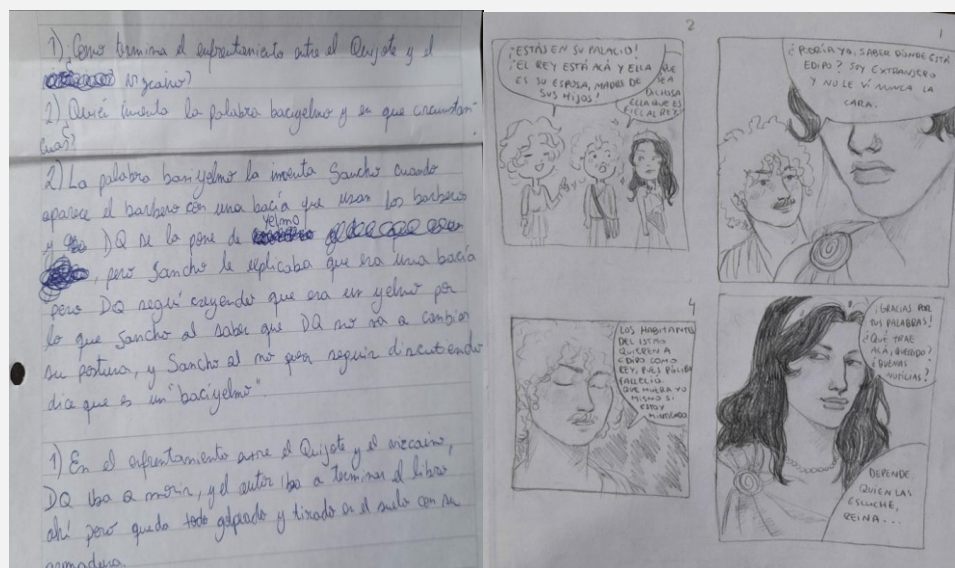 1) ¿Como termina el enfrentamiento entre el Quijote y el
vizcaino?
2) ¿Quién inventa la palabra baciyelmo y en que circunstan-
cias?
2) La palabra baciyelmo la inventa Sancho cuando
aparece el barbero con una bacía que usan los barberos
y DQ se la pone de yelmo
, pero Sancho le explicaba que era una bacía
pero DQ seguí creyendo que era un yelmo por
lo que Sancho al saber que DQ no va a cambiar
su postura, y Sancho al no seguir discutiendo
dice que es un "baciyelmo".
1) En el enfrentamiento entre el Quijote y el vizcaino,
DQ iba a morir, y el autor iba a terminar el libro
ahí pero queda todo golpeado y tirado en el suelo con su
armadura.
1
¿PODRÍA YO, SABER DÓNDE ESTÁ
EDIPO? SOY EXTRANJERO
Y NO LE VÍ NUNCA LA
CARA.
2
¡ESTÁS EN SU PALACIO!
¡EL REY ESTÁ ACÁ Y ELLA
ES SU ESPOSA, MADRE DE
SUS HIJOS!
QUE
SEA
DICHOSA
ELLA QUE ES
FIEL AL REY
¡GRACIAS POR
TUS PALABRAS!
¿QUÉ TRAE
ACÁ, QUERIDO?
¿BUENAS
NOTICIAS?
DEPENDE
QUIEN LAS
ESCUCHE,
REINA...
4
LOS HABITANTES
DEL ISTMO
QUIEREN A
EDIPO COMO
REY, PUES PÓLIBO
FALLECIÓ.
QUE MUERA YO
MISMO SI
ESTOY
MINTIENDO